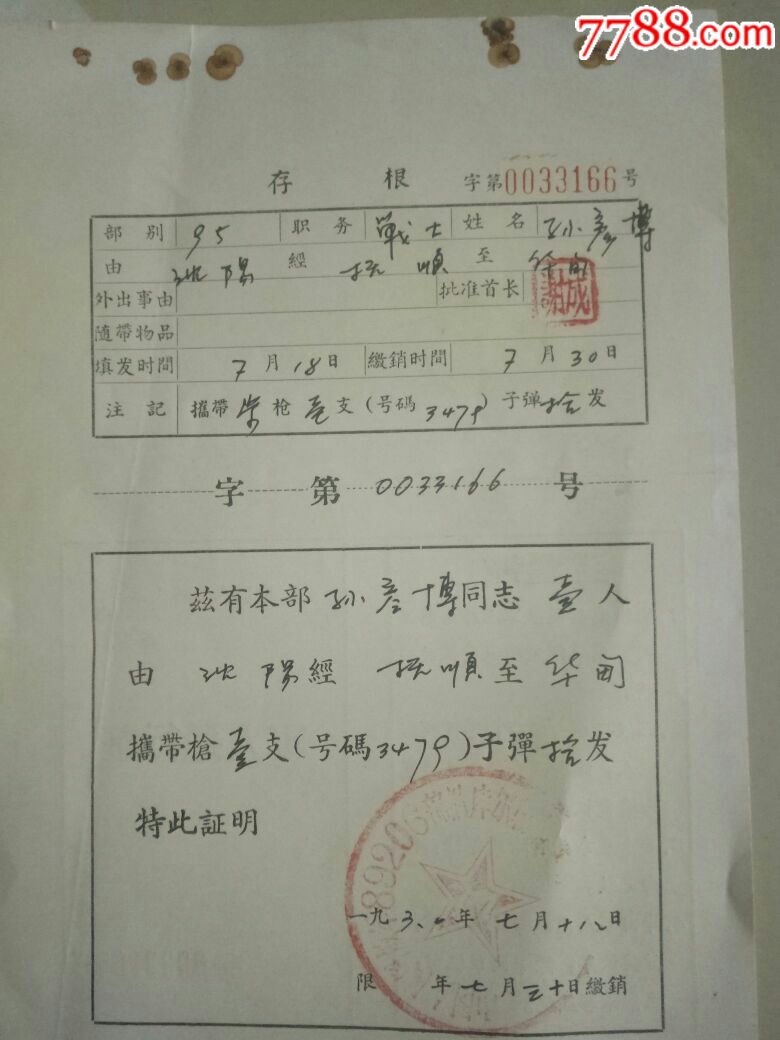 7788.com
存 根 字第0033166号
部别 95 职务 戰士 姓名 孙彦博
由 沈陽 經 抚順 至 华甸
外出事由 批准首长
隨帶物品
填发时間 7月18日 繳銷时間 7月30日
注記 攜帶 枪壱支(号碼3479)子彈拾发
字第 0033166 号
茲有本部 孙彦博同志 壹人
由 沈陽經 抚順至 华甸
攜帶槍壹支(号碼3479)子彈拾发
特此証明
89206
一九 年 七月十八日
限 年七月三十日繳銷